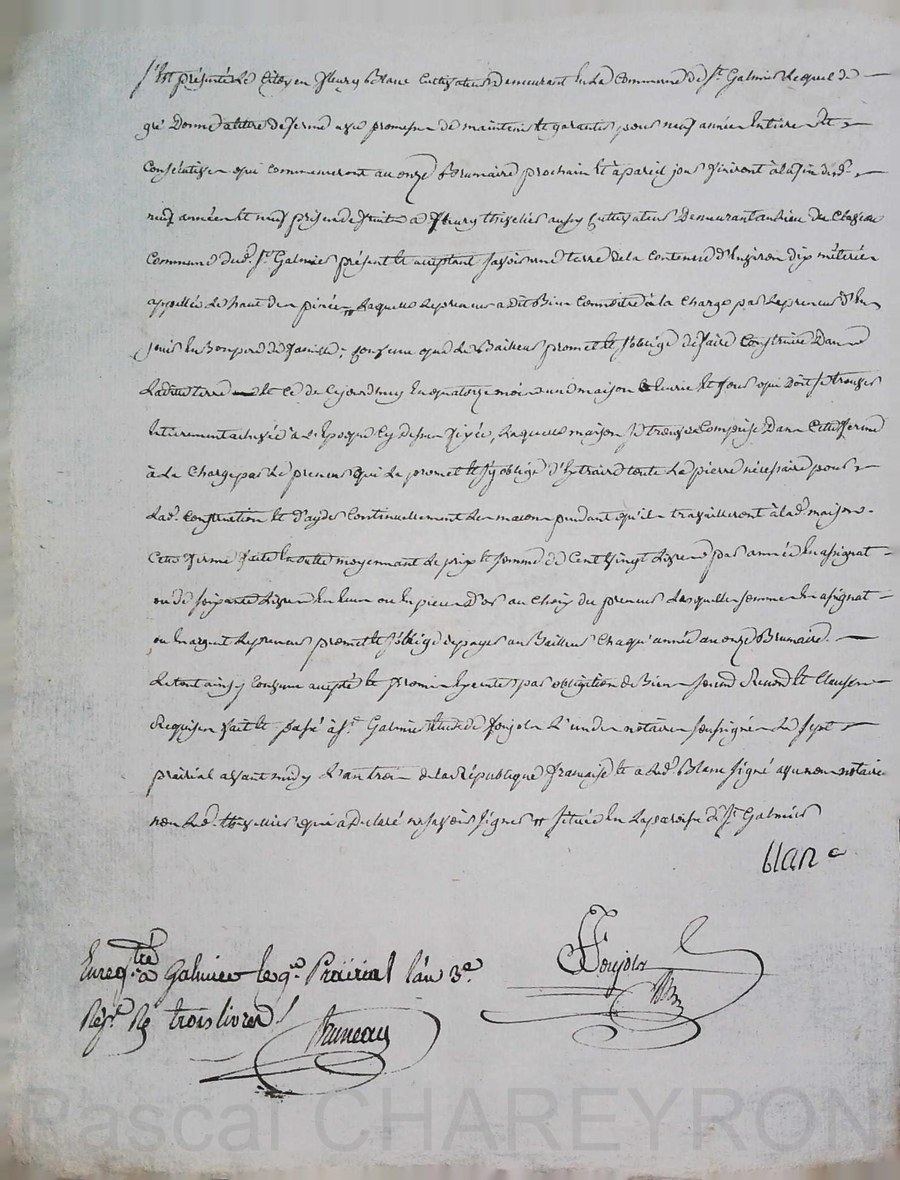 S'est présenté Le Citoyen fleury Blanc Cultivateur Demeurant En La Commune de St. Galmier Lequel de
gré Donne a titre de ferme avec promesse de maintenir et garantir pour neuf année Entiere Et
Consécutive qui commenceront au onze Brumaire prochain Et à pareil jour finiront à la fin desd.
neuf années et neuf prises de fruits a fleury thivelier aussy Cultivateur Demeurant au lieu du
Commune dud. St. Galmier présent Et acceptant savoir une terre de la Contenue d'Environ dix méterée
appellée Le haut des pinée Laquelle Le preneur a dit Bien Connoitre à la Charge par Le preneur d'En
jouir En Bon pere de famille, Convenu que Le Bailleur promet Et s'oblige de faire Construire Dans
Ladite terre Et Ce de Cejourdhuy En quatorze mois une maison Ecurie Et four qui Doit se trouver
Entierement achevée à L'Epoque Cy dessus fixée, Laquelle maison se trouve Comprise Dans Cette ferme
à La Charge par Le preneur qui Le promet Et s'y oblige d'Extraire toute La pierre nécessaire pour
Lad. Construction Et d'ayder Continuellement Les maçons pendant qu'ils travailleront à lad. maison.
Cette ferme faite En outre moyennant Le prix Et somme de Cent vingt Livres par année En asignat
ou de soixante Livres En Ecus ou En piece d'or au Choix du preneur Lasquelle somme En asignat
ou En argent Le preneur promet Et s'oblige de payer au Bailleur Chaqu'année au onze Brumaire.
Le tout ainsy Convenu accepté Et promis par obligation de Bien Renond. Et Clauses
Requises fait Et passé à St. Galmier Etude de foujols L'un des notaires soussignés Le sept
prairial avant midy L'an trois de la République française Et a Led. Blanc signé avec nous notaire
non Led. thivellier qui a Déclaré ne savoir signer # située En La paroisse de St. Galmier
blanc
Enregtré a Galmier le 9e. Prairial l'an 3e.
trois livres
foujols
Bruneau
Pascal CHAREYRON